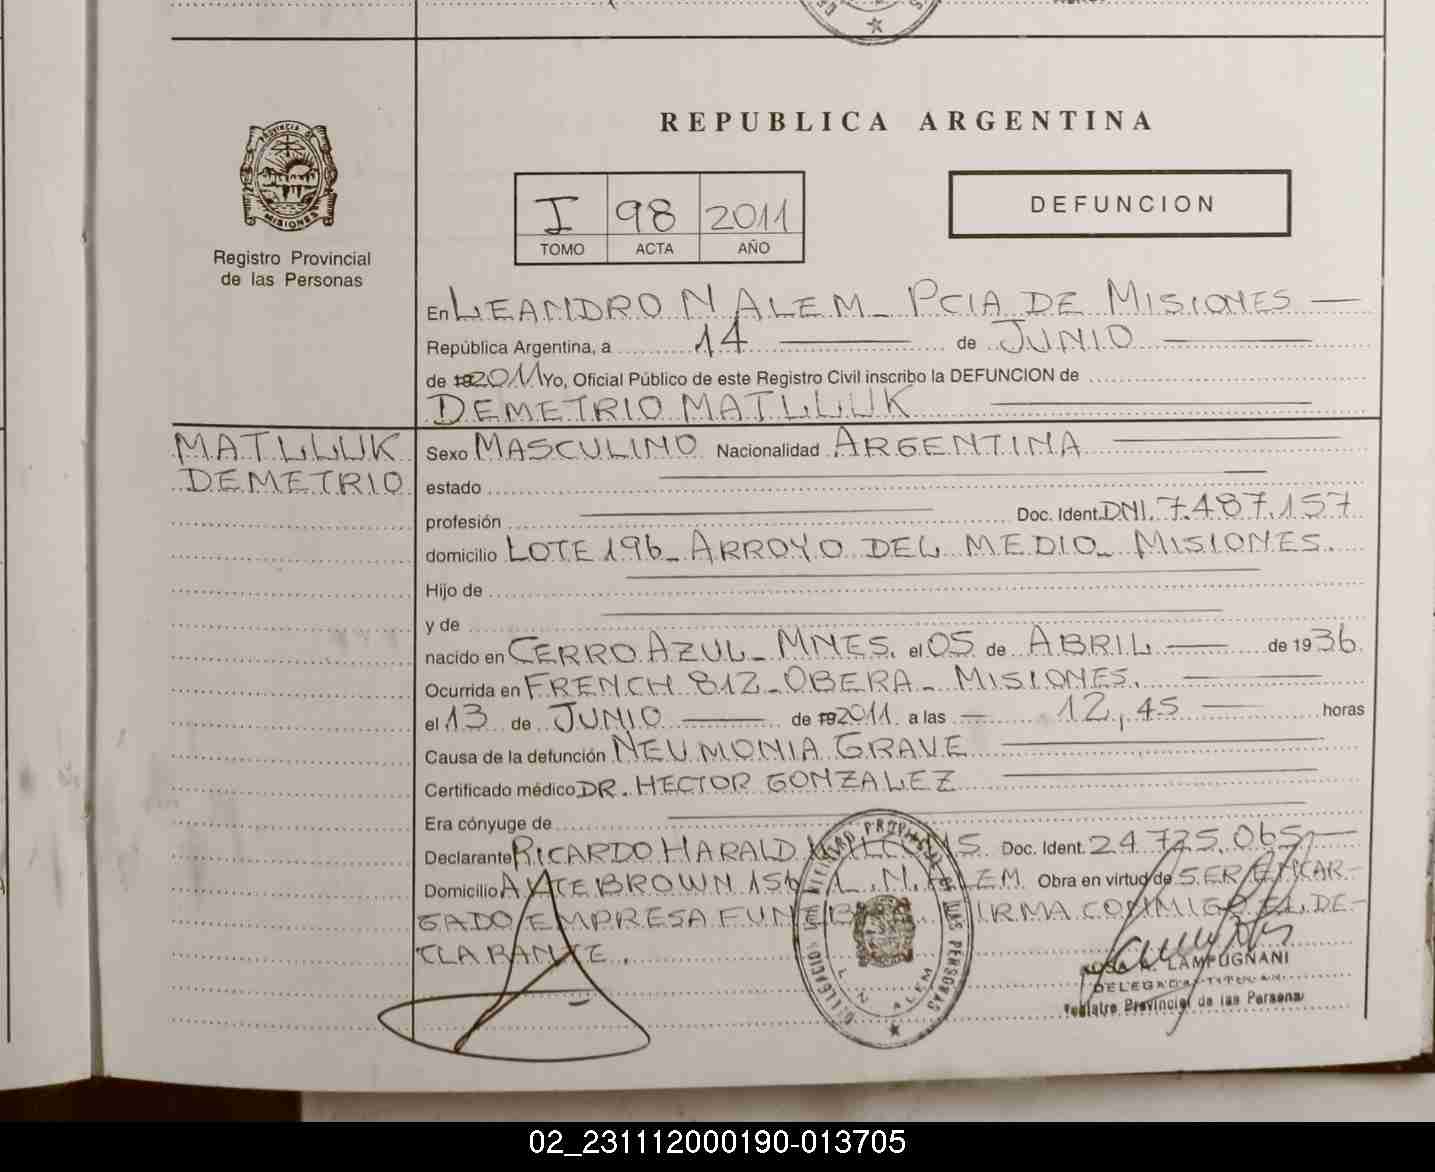 PROVINCIA DE
MISIONES
Registro Provincial
de las Personas
REPUBLICA ARGENTINA
I 98 2011
TOMO ACTA AÑO
DEFUNCION
En LEANDRO N ALEM - PCIA DE MISIONES —
República Argentina, a 14 — de JUNIO —
de 192011 Yo, Oficial Público de este Registro Civil inscribo la DEFUNCION de
DEMETRIO MATLLUK —
MATLLUK
DEMETRIO
Sexo MASCULINO Nacionalidad ARGENTINA —
estado —
profesión — Doc. Ident. DNI. 7.487.157
domicilio LOTE 196 - ARROYO DEL MEDIO - MISIONES.
Hijo de —
y de —
nacido en CERRO AZUL - MNES. el 05 de ABRIL — de 1936
Ocurrida en FRENCH 812 - OBERA - MISIONES. —
el 13 de JUNIO — de 192011 a las — 12,45 — horas
Causa de la defunción NEUMONIA GRAVE —
Certificado médico DR. HECTOR GONZALEZ —
Era cónyuge de —
Declarante RICARDO HARALD Doc. Ident. 24.725.065 —
Domicilio AVTE BROWN 156 L. N. ALEM. Obra en virtud de SER ENCAR-
GADO EMPRESA FUNEB FIRMA CONMIGO EL DE-
CLARANTE.
DELEGACION PROVINCIAL DE LAS PERSONAS
L N ALEM
ROSA A. LAMPUGNANI
DELEGADA TITULAR
Registro Provincial de las Personas
02_231112000190-013705